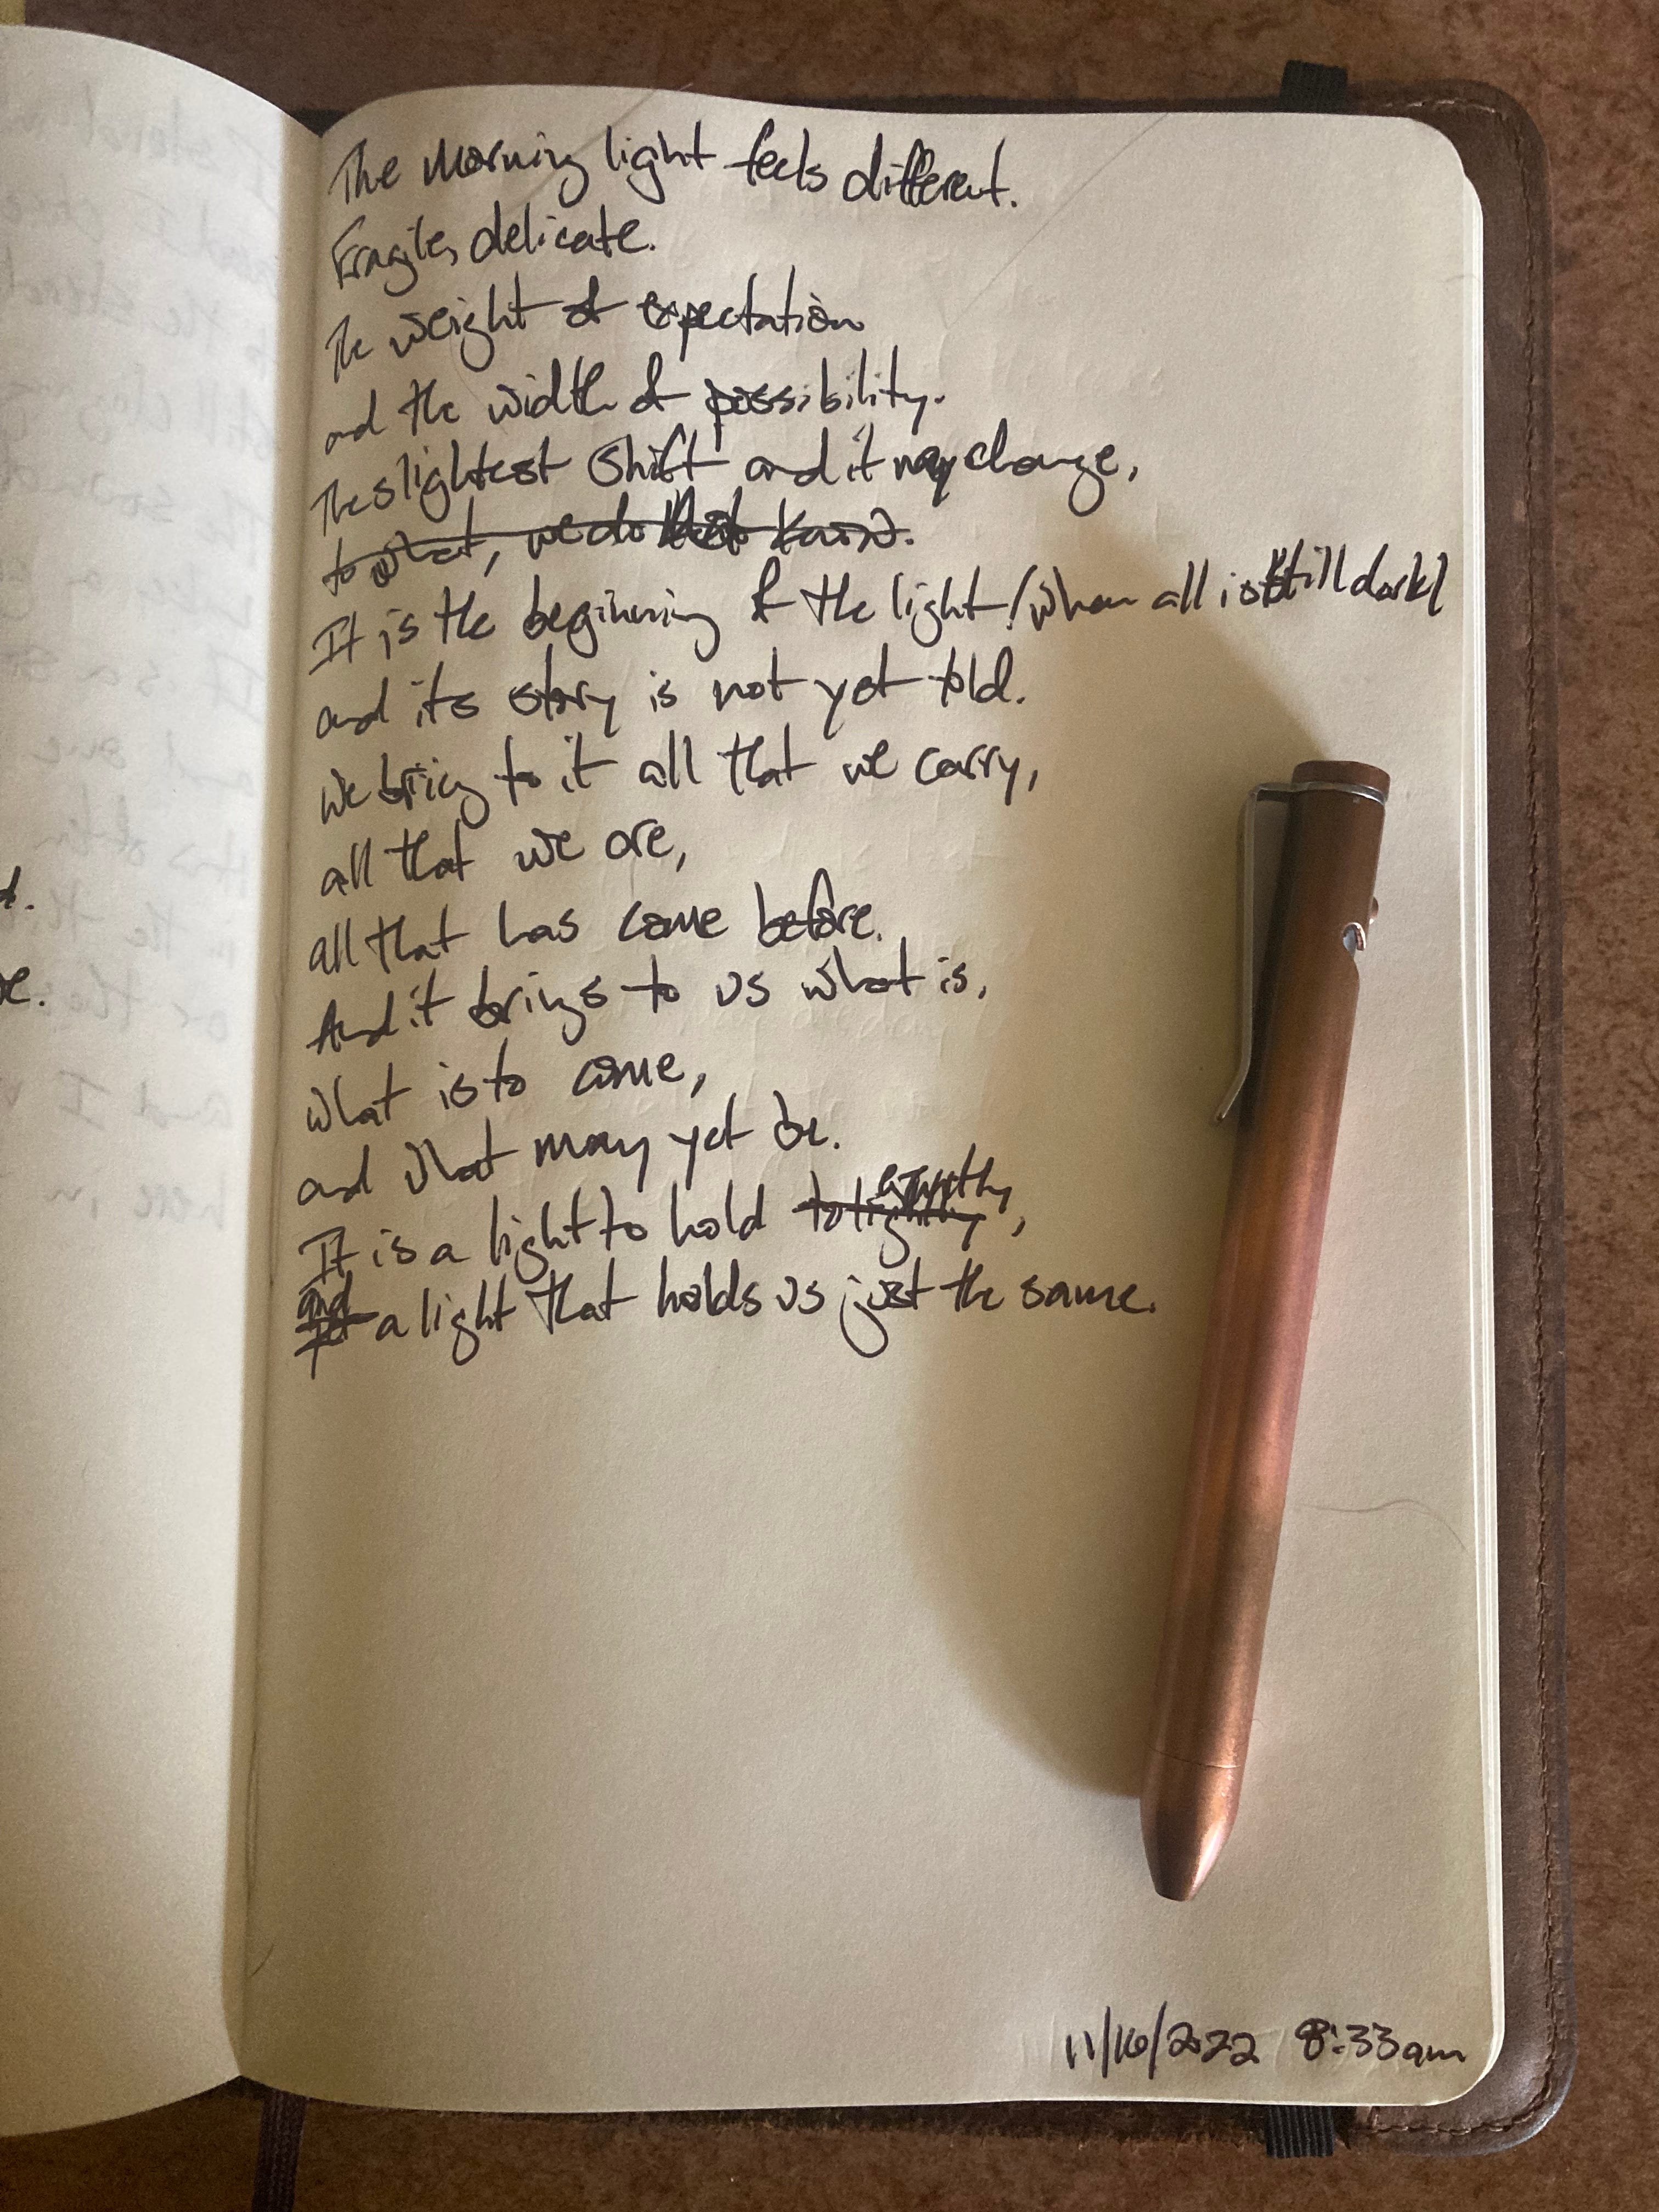 The morning light feels different.
Fragile, delicate.
The weight of expectation
and the width of possibility.
The slightest shift and it may change,
to what, we do not know.
It is the beginning of the light (when all is still dark)
and its story is not yet told.
We bring to it all that we carry,
all that we are,
all that has come before.
And it brings to us what is,
what is to come,
and what may yet be.
It is a light to hold to lightly,
and a light that holds us just the same.
11/16/2022 8:33am